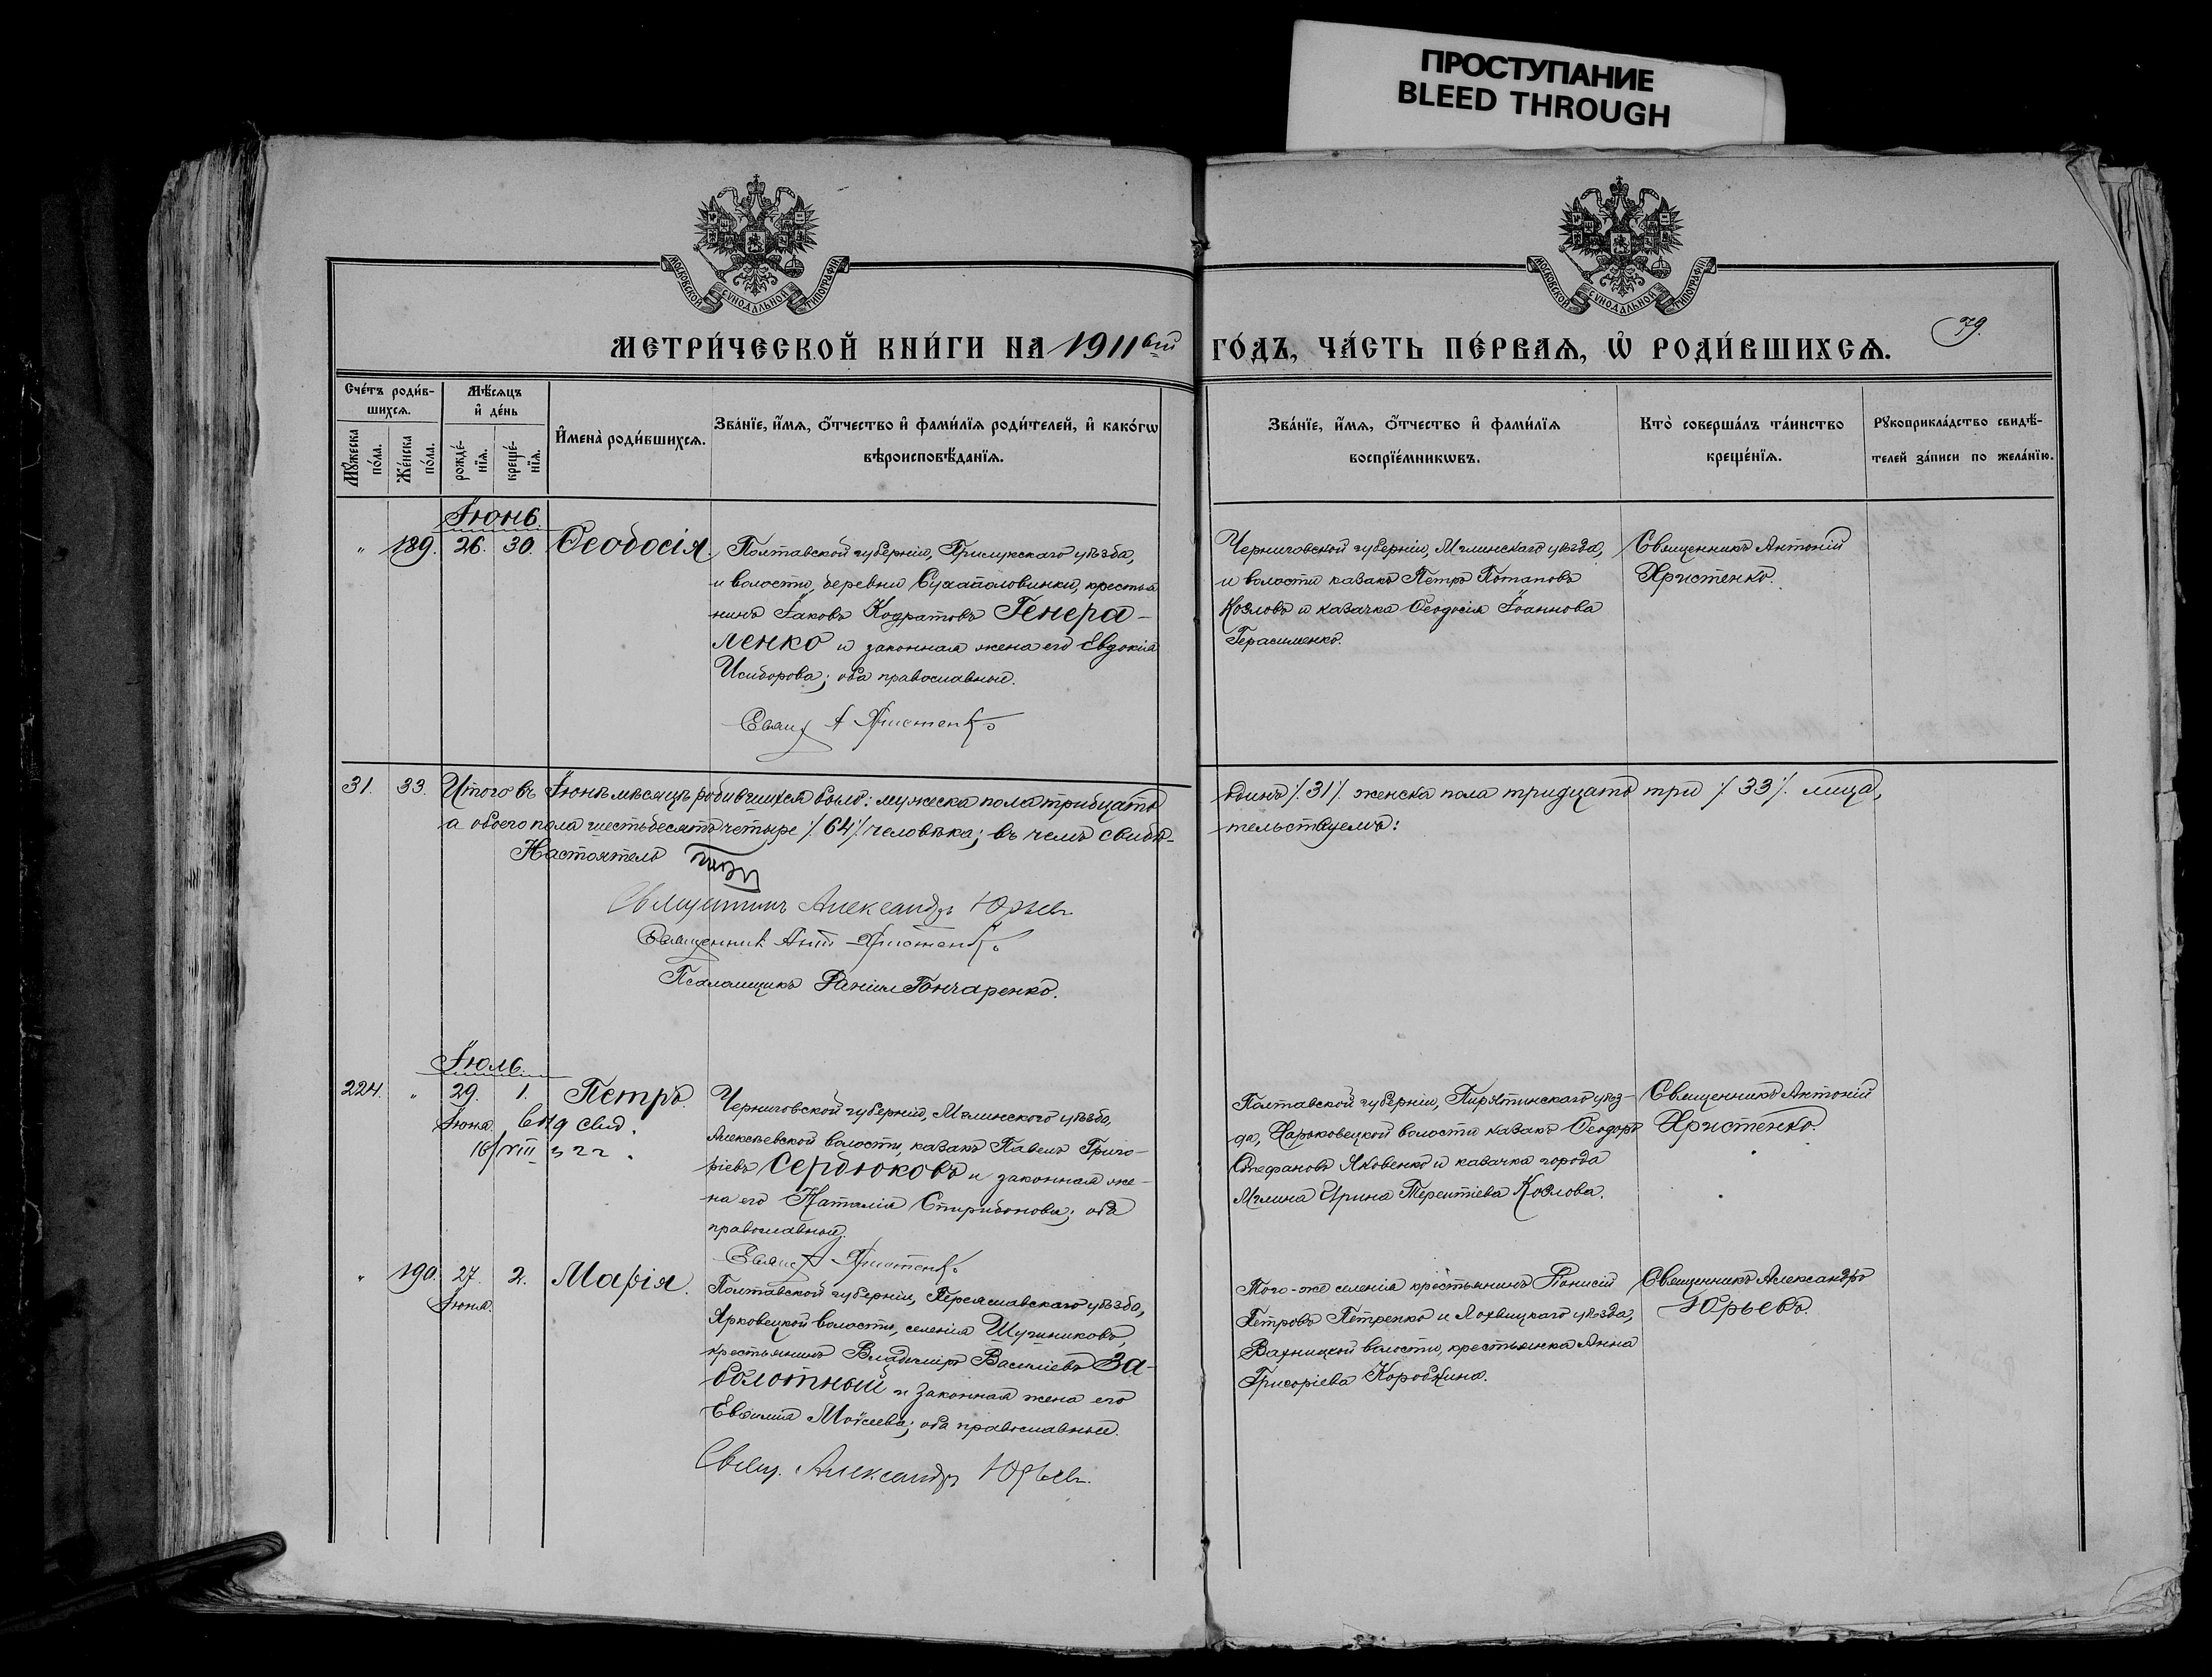 ПРОСТУПАНИЕ
BLEED THROUGH
МОСКОВСКОЙ СѴНОДАЛЬНОЙ ТИПОГРАФІИ
МОСКОВСКОЙ СѴНОДАЛЬНОЙ ТИПОГРАФІИ
МЕТРИ́ЧЕСКОЙ КНИ́ГИ НА 1911ый ГО́ДЪ, ЧА́СТЬ ПЕ́РВАѦ, Ѡ҆ РОДИ́ВШИХСѦ.
79.
Сче́тъ роди́в-
шихсѧ.
Мꙋ́жеска по́ла.
Же́нска по́ла.
Мѣ́сѧцъ
и҆ де́нь
рожде́-
нїѧ.
креще́-
нїѧ.
И҆мена̀ роди́вшихсѧ.
Зва́нїе, и҆́мѧ, ѻ҆́тчество и҆ фами́лїѧ роди́телей, и҆ како́гѡ
вѣроисповѣ́данїѧ.
Зва́нїе, и҆́мѧ, ѻ҆́тчество и҆ фами́лїѧ
воспрїе́мникѡвъ.
Кто̀ соверша́лъ та́инство
креще́нїѧ.
Рꙋкоприкла́дство свидѣ́-
телей за́писи по жела́нїю.
Іюнь.
" 189. 26. 30. Ѳеодосія.
Полтавской губерніи, Прилукскаго уѣзда,
и волости, деревни Сухаполовинки, крестья
нинъ Іаковъ Кодратовъ Генера-
ленко и законная жена его Евдокія
Исидорова; оба православные.
Свящ А Христенко
Черниговской губерніи, Мглинскаго уѣзда,
и волости казакъ Петръ Потаповъ
Козловъ и казачка Ѳеодосія Іоаннова
Герасименко.
Священникъ Антоній
Христенко.
31. 33. Итого въ Іюнѣ мѣсяцѣ родившихся было: мужеска пола тридцать одинъ /.31/. женска пола тридцать три /.33/. лица,
а обоего пола шестьдесятъ четыре /.64/. человѣка; въ чемъ свидѣ-тельствуемъ:
Настоятель
Священникъ Александръ Юрьевъ
Священникъ Ант Христенко
Псаломщикъ Даніилъ Гончаренко.
Іюль.
224. " 29. 1. Петръ.
Іюня.
16/VIII
Черниговской губерніи, Мглинского уѣзда,
Алексѣевской волости, казакъ Павелъ Григо-
ріевъ Сердюковъ и законная же-
на его Наталія Спиридонова; оба
православные.
Свящ А Христенко
Полтавской губерніи, Пирятинскаго уѣз-
да, Харьковецкой волости казакъ Ѳеодоръ
Стефановъ Яковенко и казачка города
Мглина Ирина Терентіева Козлова.
Священникъ Антоній
Христенко.
" 190. 27. 2. Марія.
Іюня.
Полтавской губерніи, Переяславскаго уѣзда,
Ярковецкой волости, селенія
крестьянинъ Владиміръ Василіевъ За-
болотный и законная жена его
Евѳимія Моѵсеева; оба православные.
Свящ. Александръ Юрьевъ.
Того-же селенія крестьянинъ Діонисій
Петровъ Петренко и Лохвицкаго уѣзда,
волости, крестьянка Анна
Григоріева Коробкина.
Священникъ Александръ
Юрьевъ.